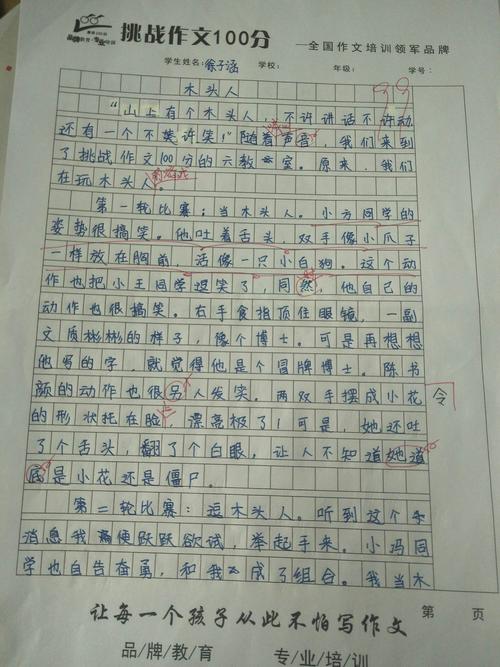 挑战作文100分
—全国作文培训领军品牌
学生姓名:徐子涵 学校: 年级: 学号:
99
木头人
“山上有个木头人，不许讲话不许动
还有一个不笑许笑！”随着声音，我们来到
了挑战作文100分的六教室。原来，我们
在玩木头人。
的游戏
第一轮比赛：当木头人。小方同学的
姿势很搞笑。他吐着舌头，双手像小爪子
一样放在胸前，活像一只小白狗。这个动
作也把小王同学逗笑了，同然，他自己的
动作也很搞笑。右手食指顶住眼镜，一副
文质彬彬的样子，像个博士。可是再想想
他写的字，就觉得他是个冒牌博士。陈书
颜的动作也很另人发笑。两双手摆成小花
令
的形状托在脸，漂亮极了！可是，她还吐
了个舌头，翻了个白眼。让人不知道她道
底是小花还是僵尸。
第二轮比赛：逗木头人。听到这个
消息我便跃跃欲试，举起手来。小冯同
学也自告奋勇，和我成了组合。我当木
让每一个孩子从此不怕写作文
第 页
品/牌/教/育 专/业/培/训